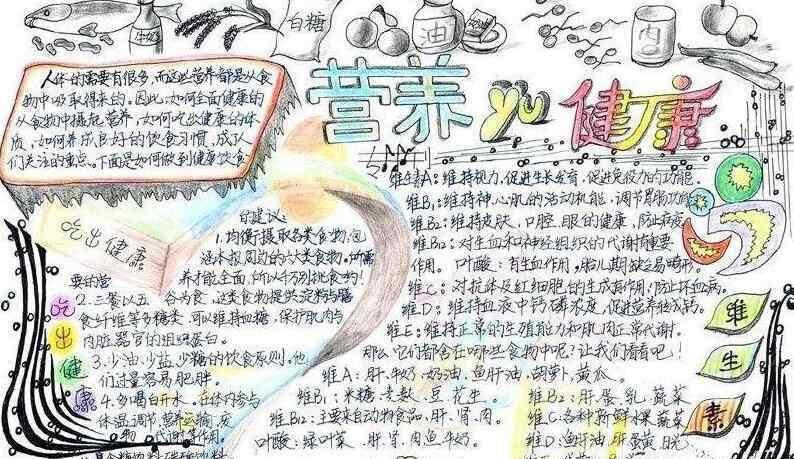 白糖
牛奶
油
肉
营养 yu 健康
人体的需要有很多,而这些营养都是从食
物中吸取得来的。因此,如何全面健康的
从食物中摄取营养,如何吃出健康的体
质,如何养成良好的饮食习惯,成了人
们关注的重点。下面是如何做到健康饮食
的建议:
吃出健康
1.均衡摄取各类食物,包
括本报周边的六大类食物。所需
要的营养才能全面,所以千万别挑食哟!
2.三餐以五谷为食,这类食物提供淀粉与膳
食纤维等多糖类,可以维持血糖,保护肌肉与
内脏器官的组织蛋白。
3.少油、少盐、少糖的饮食原则。他
们过量容易肥胖。
4.多喝白开水。在体内参与
体温调节、营养运输、废
物、代谢等作用。
吃
出
健
康
维生A:维持视力,促进生长发育,促进免疫力的功能。
维B₁:维持神心肌的活动机能,调节胃肠功能
维B₂:维持皮肤、口腔、眼的健康,防止病变
维B₁₂:对生血和神经组织的代谢持重要
作用。 叶酸:有生血作用,胎儿期缺乏易畸形。
维C:对抗体及红细胞的生成有作用,防止坏血病。
维D:维持血液中钙磷浓度,促进营养成钙。
维E:维持正常的生殖能力和肌肉正常代谢。
那么它们都含在哪些食物中呢?让我们看看吧!
维A:肝、牛奶、奶油、鱼肝油、胡萝卜、黄瓜。
维B₁:米糠、麦麸、豆、花生。 维B₂:肝、蛋、乳、蔬菜
维B₁₂:主要来自动物食品,肝、肾、肉。 维C:各种新鲜水果、蔬菜
叶酸:绿叶菜、肝、肾、肉、鱼、牛奶。 维D:鱼肝油、肝、蛋黄、日光
维
生
素